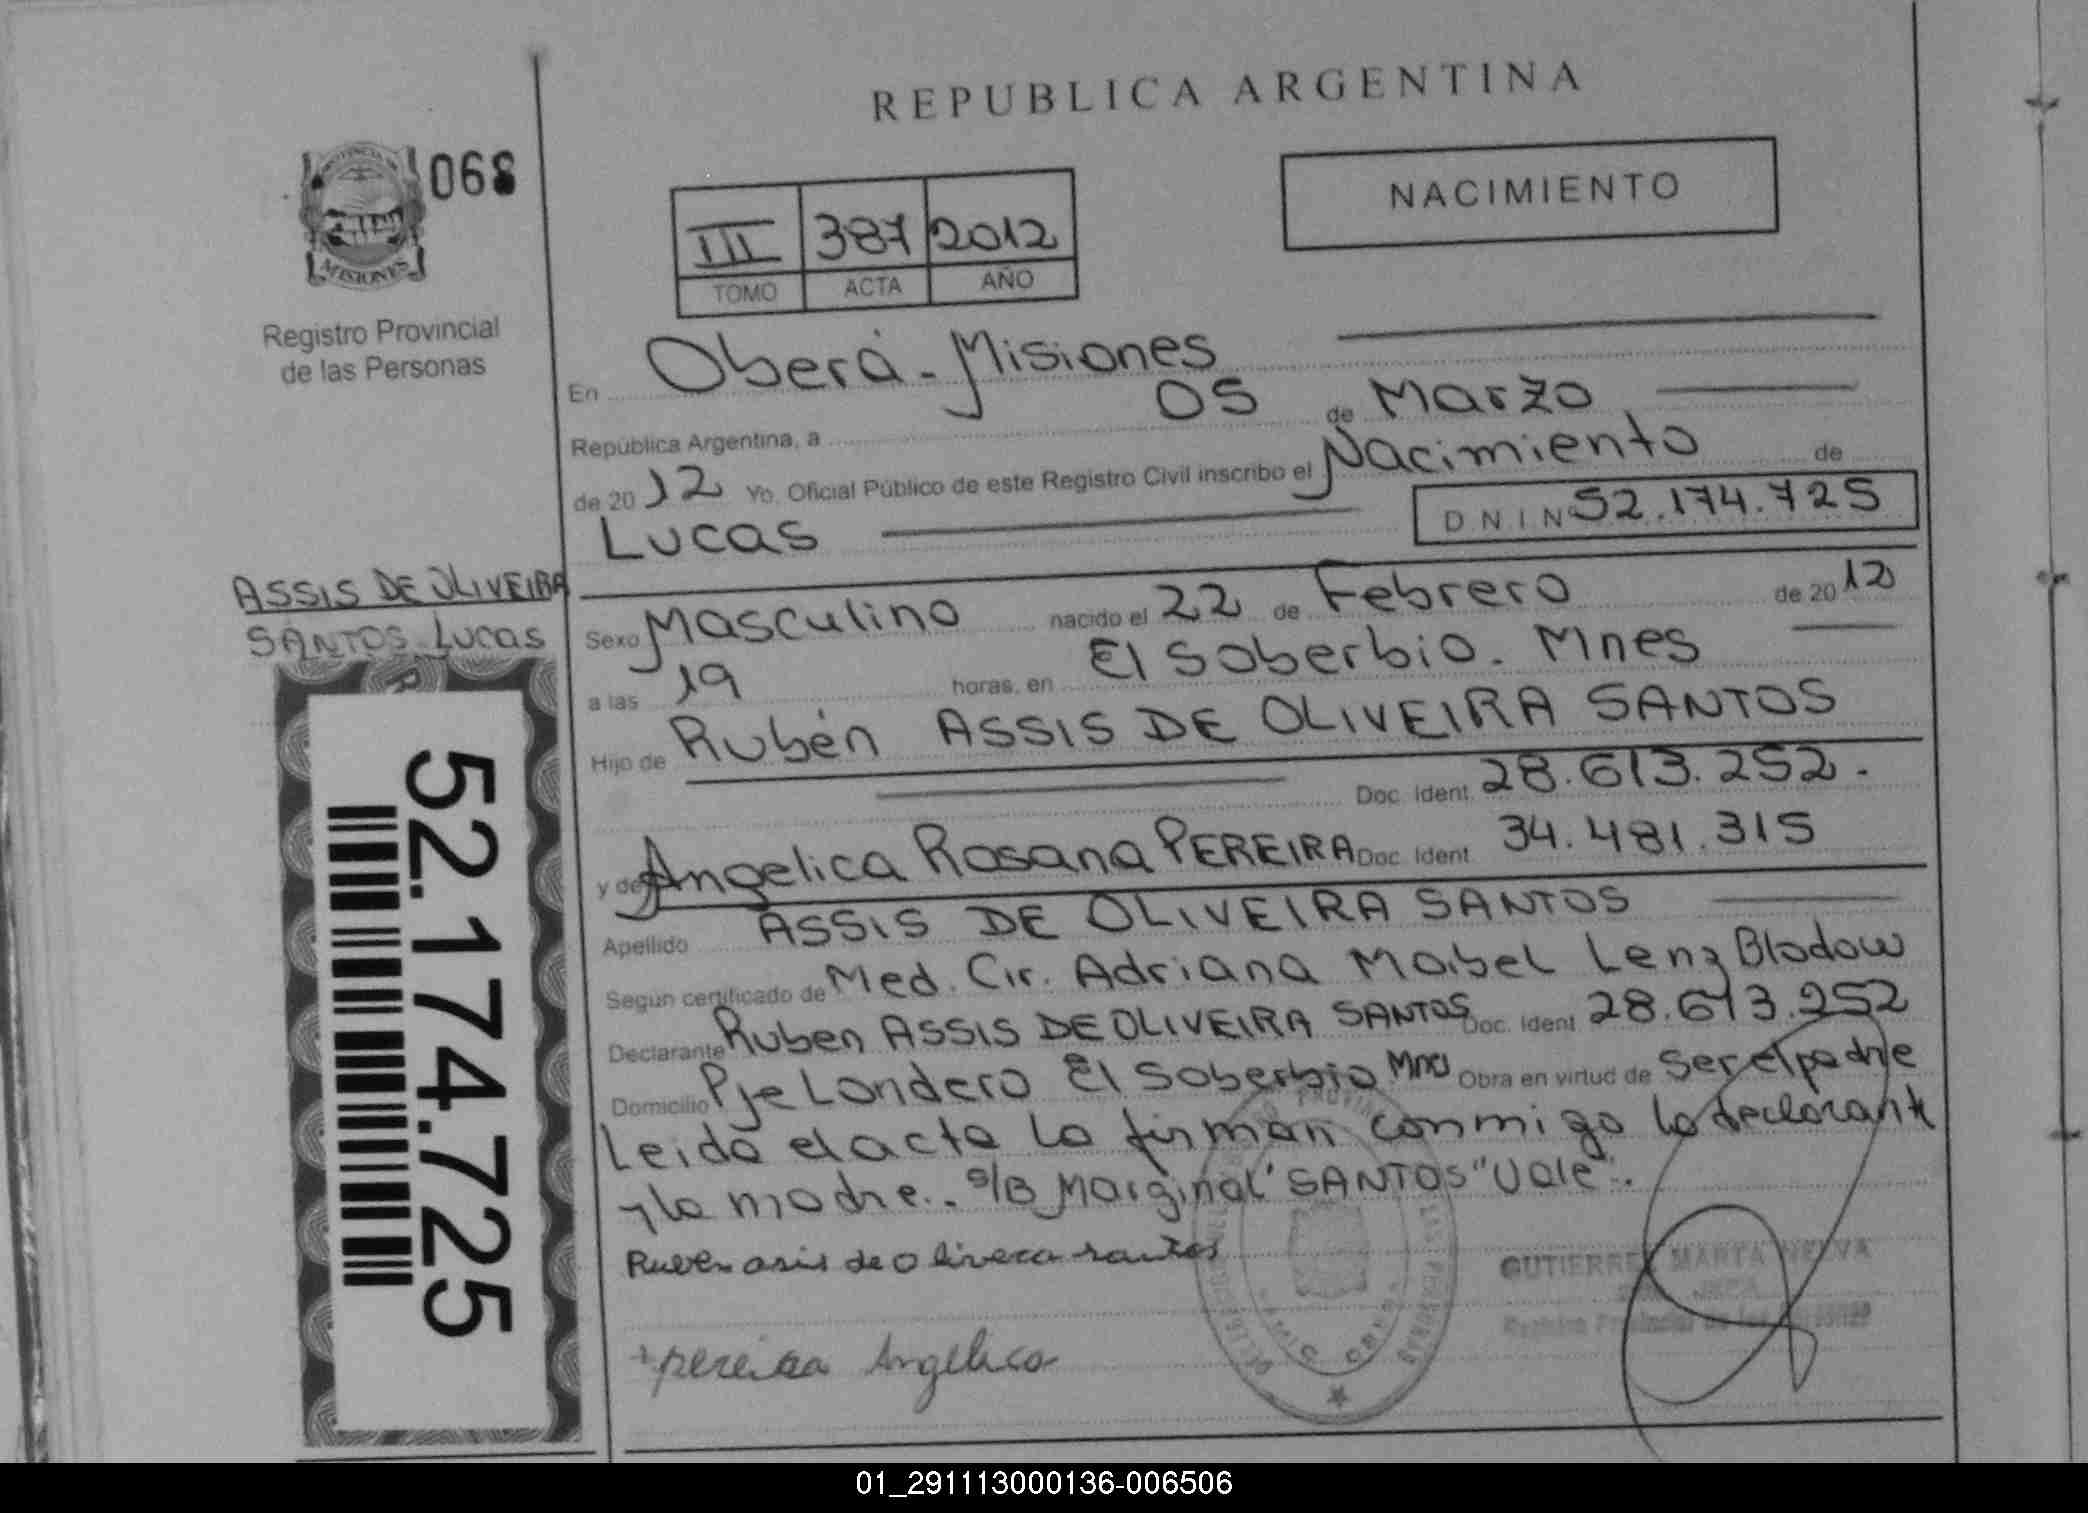 REPUBLICA ARGENTINA
PROVINCIA DE
MISIONES
068
Registro Provincial
de las Personas
III 387 2012
TOMO ACTA AÑO
NACIMIENTO
En Oberá - Misiones
República Argentina, a 05 de Marzo
de 2012 Yo, Oficial Público de este Registro Civil inscribo el Nacimiento de
Lucas D N I Nº 52.174.725
ASSIS DE OLIVEIRA
SANTOS Lucas
52.174.725
Sexo Masculino nacido el 22 de Febrero de 2012
a las 19 horas, en El Soberbio. Mnes
Hijo de Rubén ASSIS DE OLIVEIRA SANTOS
Doc. Ident. 28.613.252.
y de Angelica Rosana PEREIRA Doc. Ident. 34.481.315
Apellido ASSIS DE OLIVEIRA SANTOS
Según certificado de Med. Cir. Adriana Maibel Lenz Blodow
Declarante Ruben ASSIS DE OLIVEIRA SANTOS Doc. Ident. 28.613.252
Domicilio Pje Londero El Soberbio Mnes Obra en virtud de Ser el padre
Leida el acta la firman conmigo la declarante
y la madre. S/B Marginal "SANTOS" "Vale".
Ruben asis de olivera santos
pereira Angelica
GUTIERREZ MARTA
Registro Provincial de las Personas
01_291113000136-006506